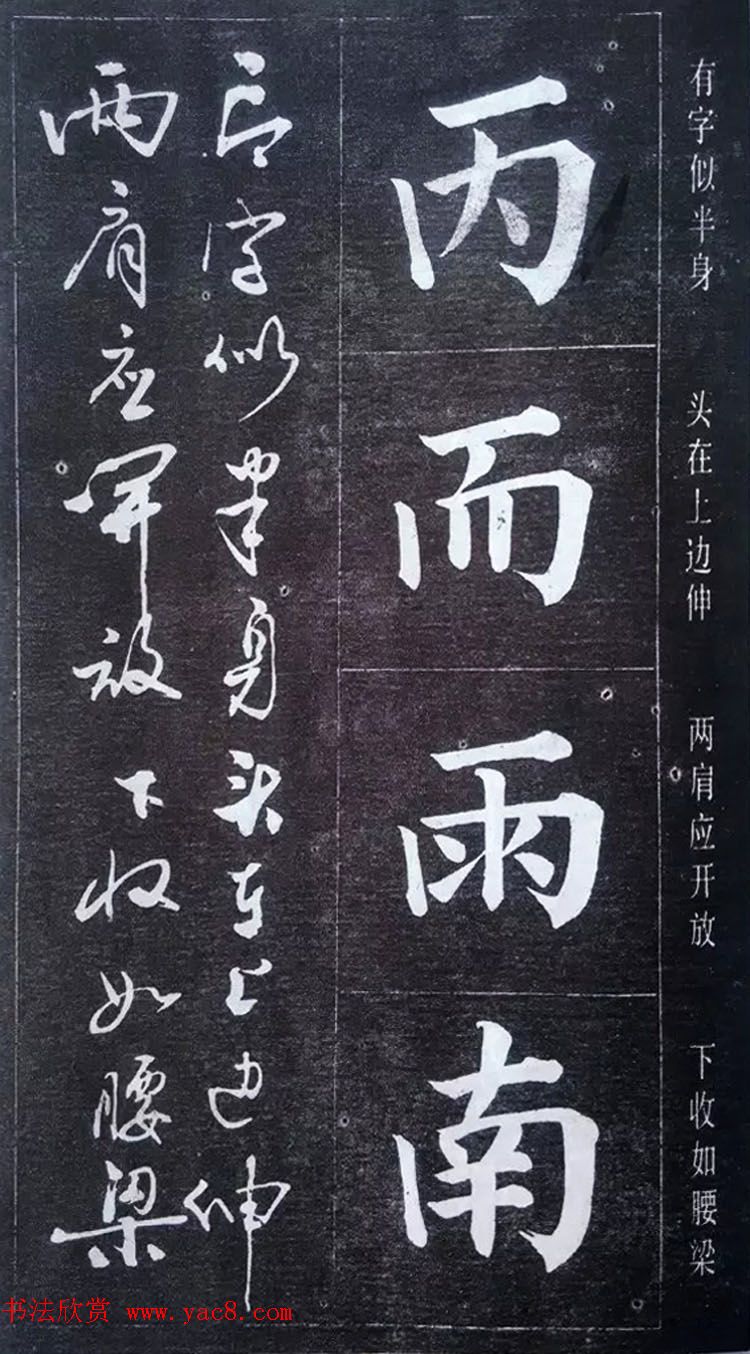 有字似半身 头在上边伸 两肩应开放 下收如腰梁
丙而雨南
有字似半身头在上边伸
两肩应開放下收如腰梁
书法欣赏 www.yac8.com